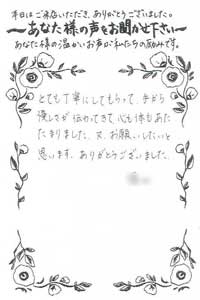 本日はご来店いただき、ありがとうございました。
～あなた様の声をお聞かせ下さい～
あなた様の温かいお声が私たちの励みです。
とても丁寧にしてもらって、手から
優しさが伝わってきて、心も体もあた
たまりました。又、お願いしたいと
思います。ありがとうございました。